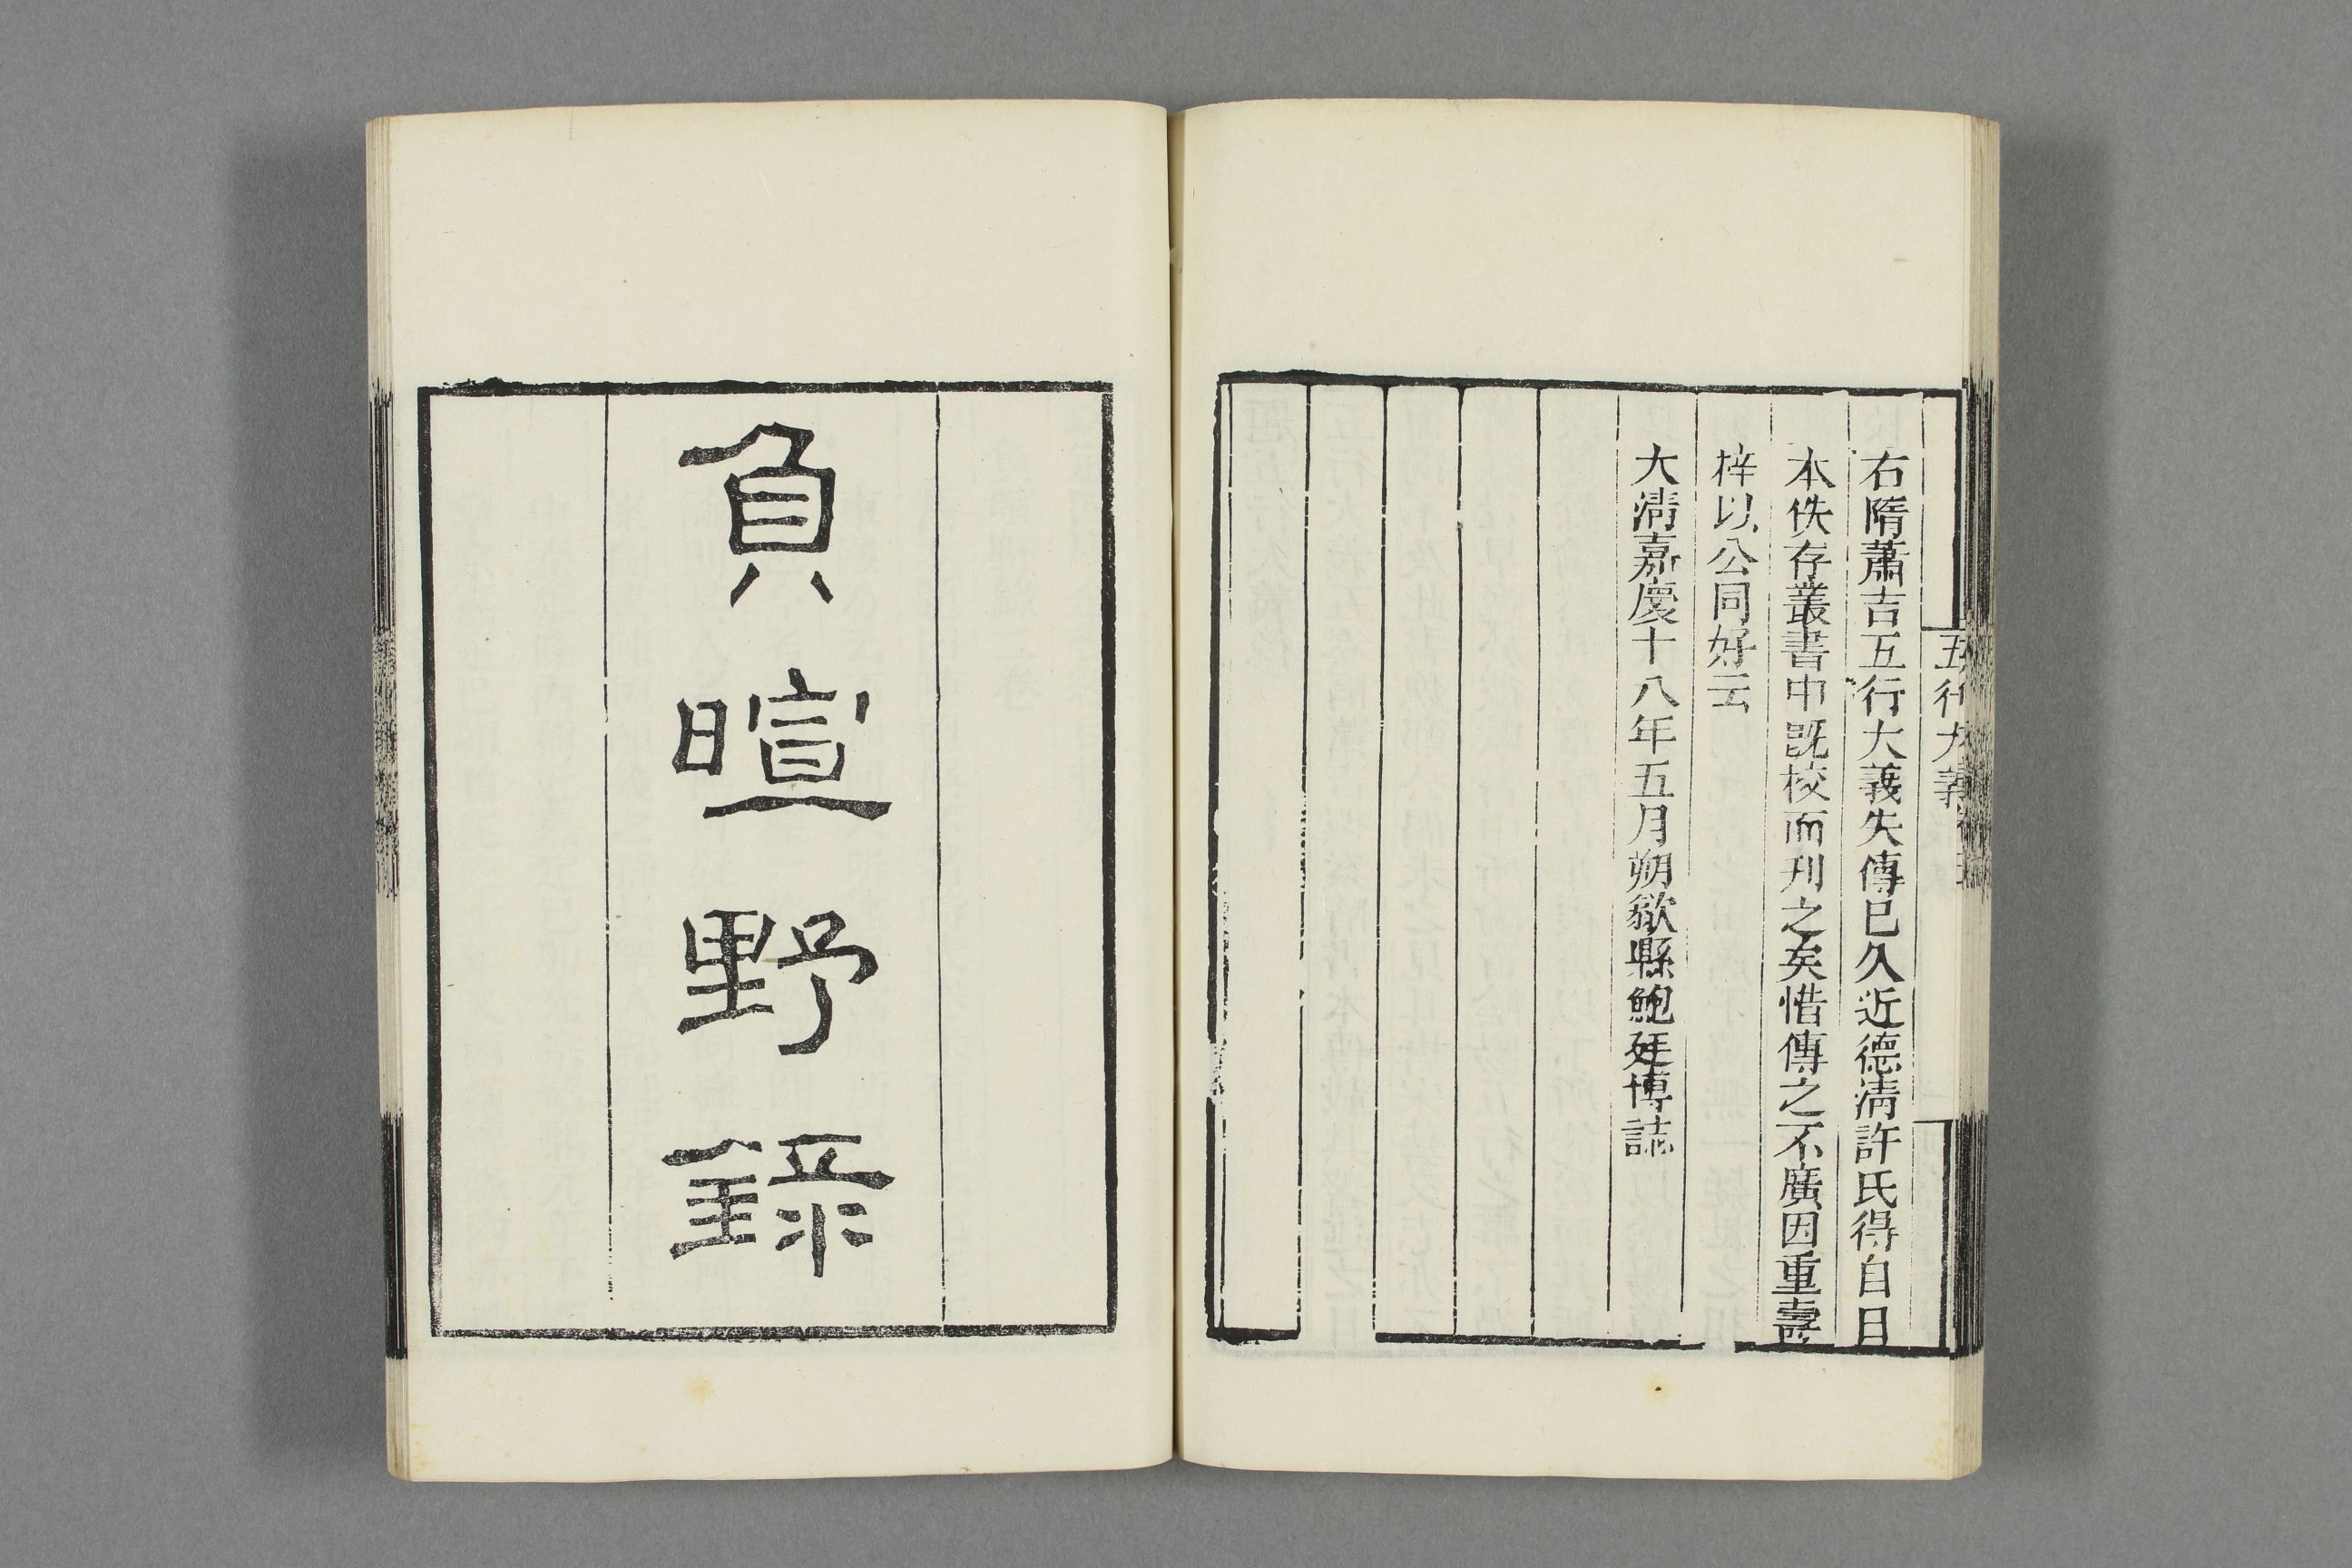 五行大義
右隋蕭吉五行大義失傳已久近德淸許氏得自日
本佚存叢書中既校而刋之矣惜傳之不廣因重壽
梓以公同好云
大淸嘉慶十八年五月朔歙縣鮑廷博誌
負暄野錄